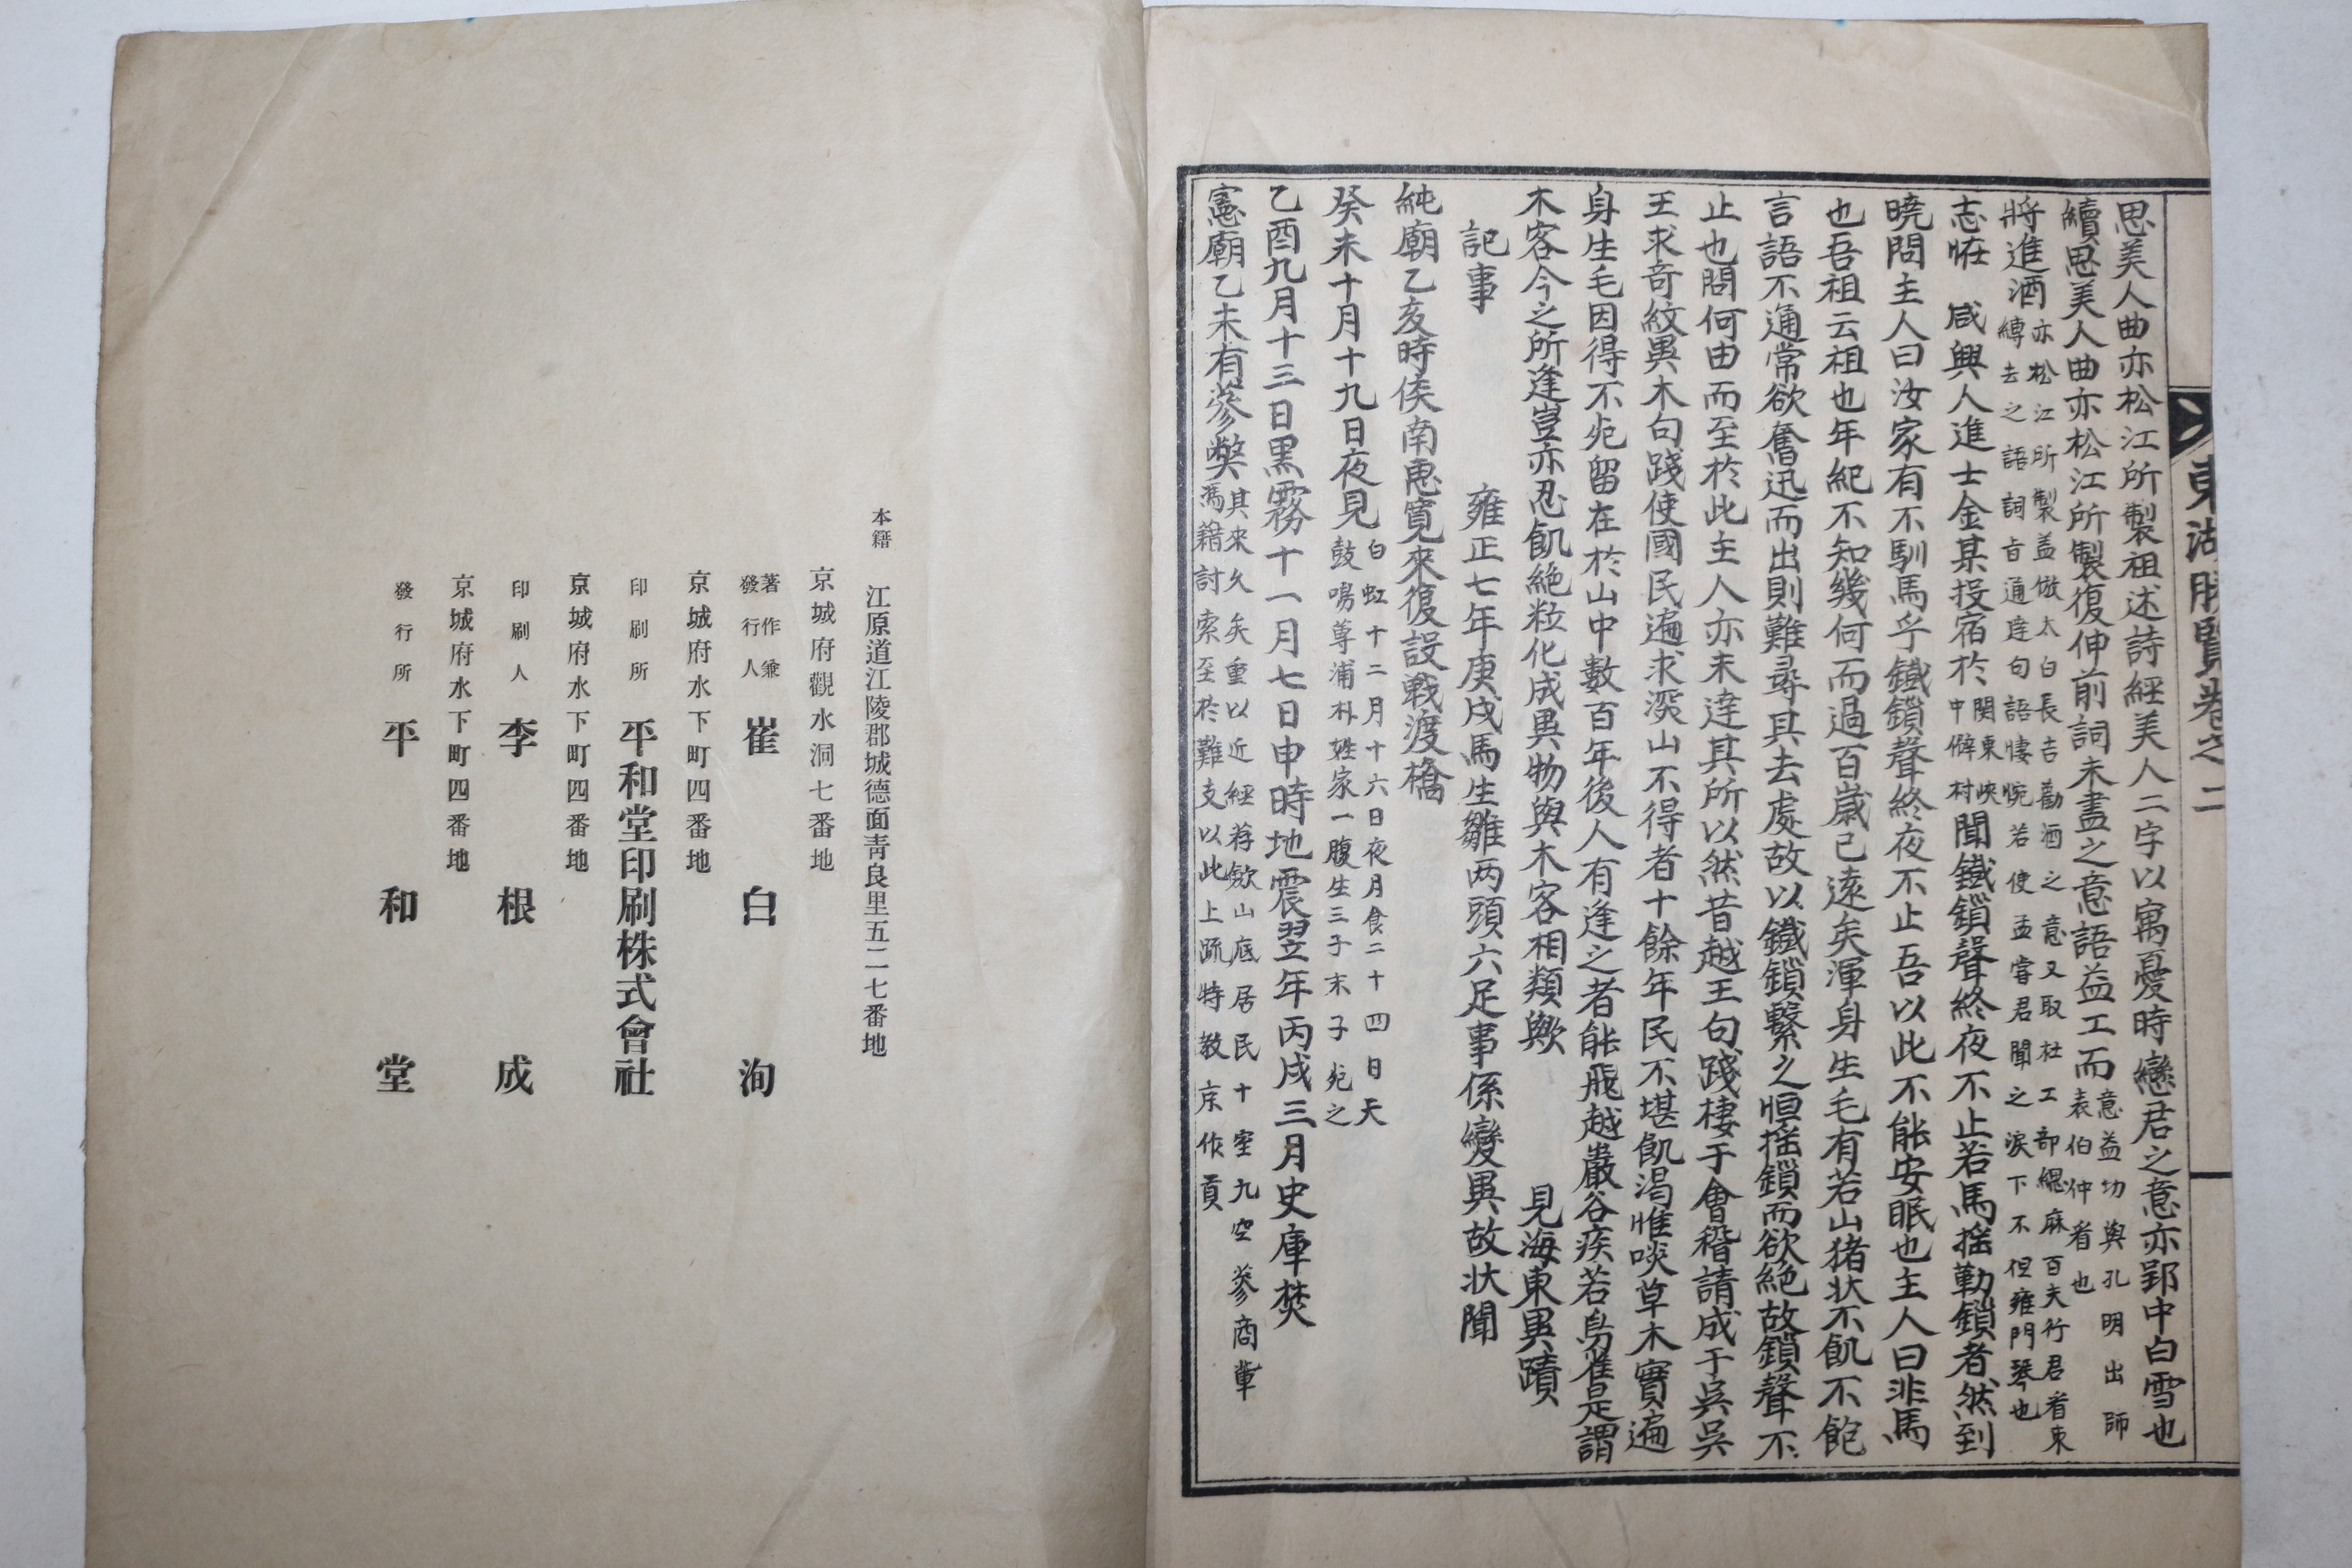 東湖勝覽卷之二
思美人曲亦松江所製祖述詩經美人二字以寓憂時戀君之意亦郢中白雪也
續思美人曲亦松江所製復伸前詞未盡之意語益工而意益切與孔明出師
表伯仲者也
將進酒亦松江所製盖倣太白長吉勸酒之意又取杜工部緦麻百夫行君看束
縛去之語詞旨通達句語悽惋若使孟嘗君聞之淚下不但雍門琴也
志恠 咸興人進士金某投宿於關東峽中僻村聞鐵鎖聲終夜不止若馬搖勒鎖者然到
曉問主人曰汝家有不馴馬乎鐵鎖聲終夜不止吾以此不能安眠也主人曰非馬
也吾祖云祖也年紀不知幾何而過百歲已遠矣渾身生毛有若山猪狀不飢不飽
言語不通常欲奮迅而出則難尋其去處故以鐵鎖繫之恒搖鎖而欲絶故鎖聲不
止也問何由而至於此主人亦未達其所以然昔越王句踐棲于會稽請成于吳吳
王求奇紋異木句踐使國民遍求深山不得者十餘年民不堪飢渴惟啖草木實遍
身生毛因得不死留在於山中數百年後人有逢之者能飛越巖谷疾若鳥雀是謂
木客今之所逢豈亦忍飢絶粒化成異物與木客相類歟 見海東異蹟
記事 雍正七年庚戌馬生雛两頭六足事係變異故狀聞
純廟乙亥時侯南惠寬來復設戰渡橋
癸未十月十九日夜見白虹十二月十六日夜月食二十四日天
鼓鳴尊浦朴姓家一腹生三子末子死之
乙酉九月十三日黑霧十一月七日申時地震翌年丙戌三月史庫焚
憲廟乙未有蔘弊其來久矣重以近經荐歉山底居民十室九空蔘商軰
馮藉討索至於難支以此上疏特敎京作貢
本籍 江原道江陵郡城德面靑良里五二七番地
京城府觀水洞七番地
著作兼
發行人 崔白洵
京城府水下町四番地
印刷所 平和堂印刷株式會社
京城府水下町四番地
印刷人 李根成
京城府水下町四番地
發行所 平和堂